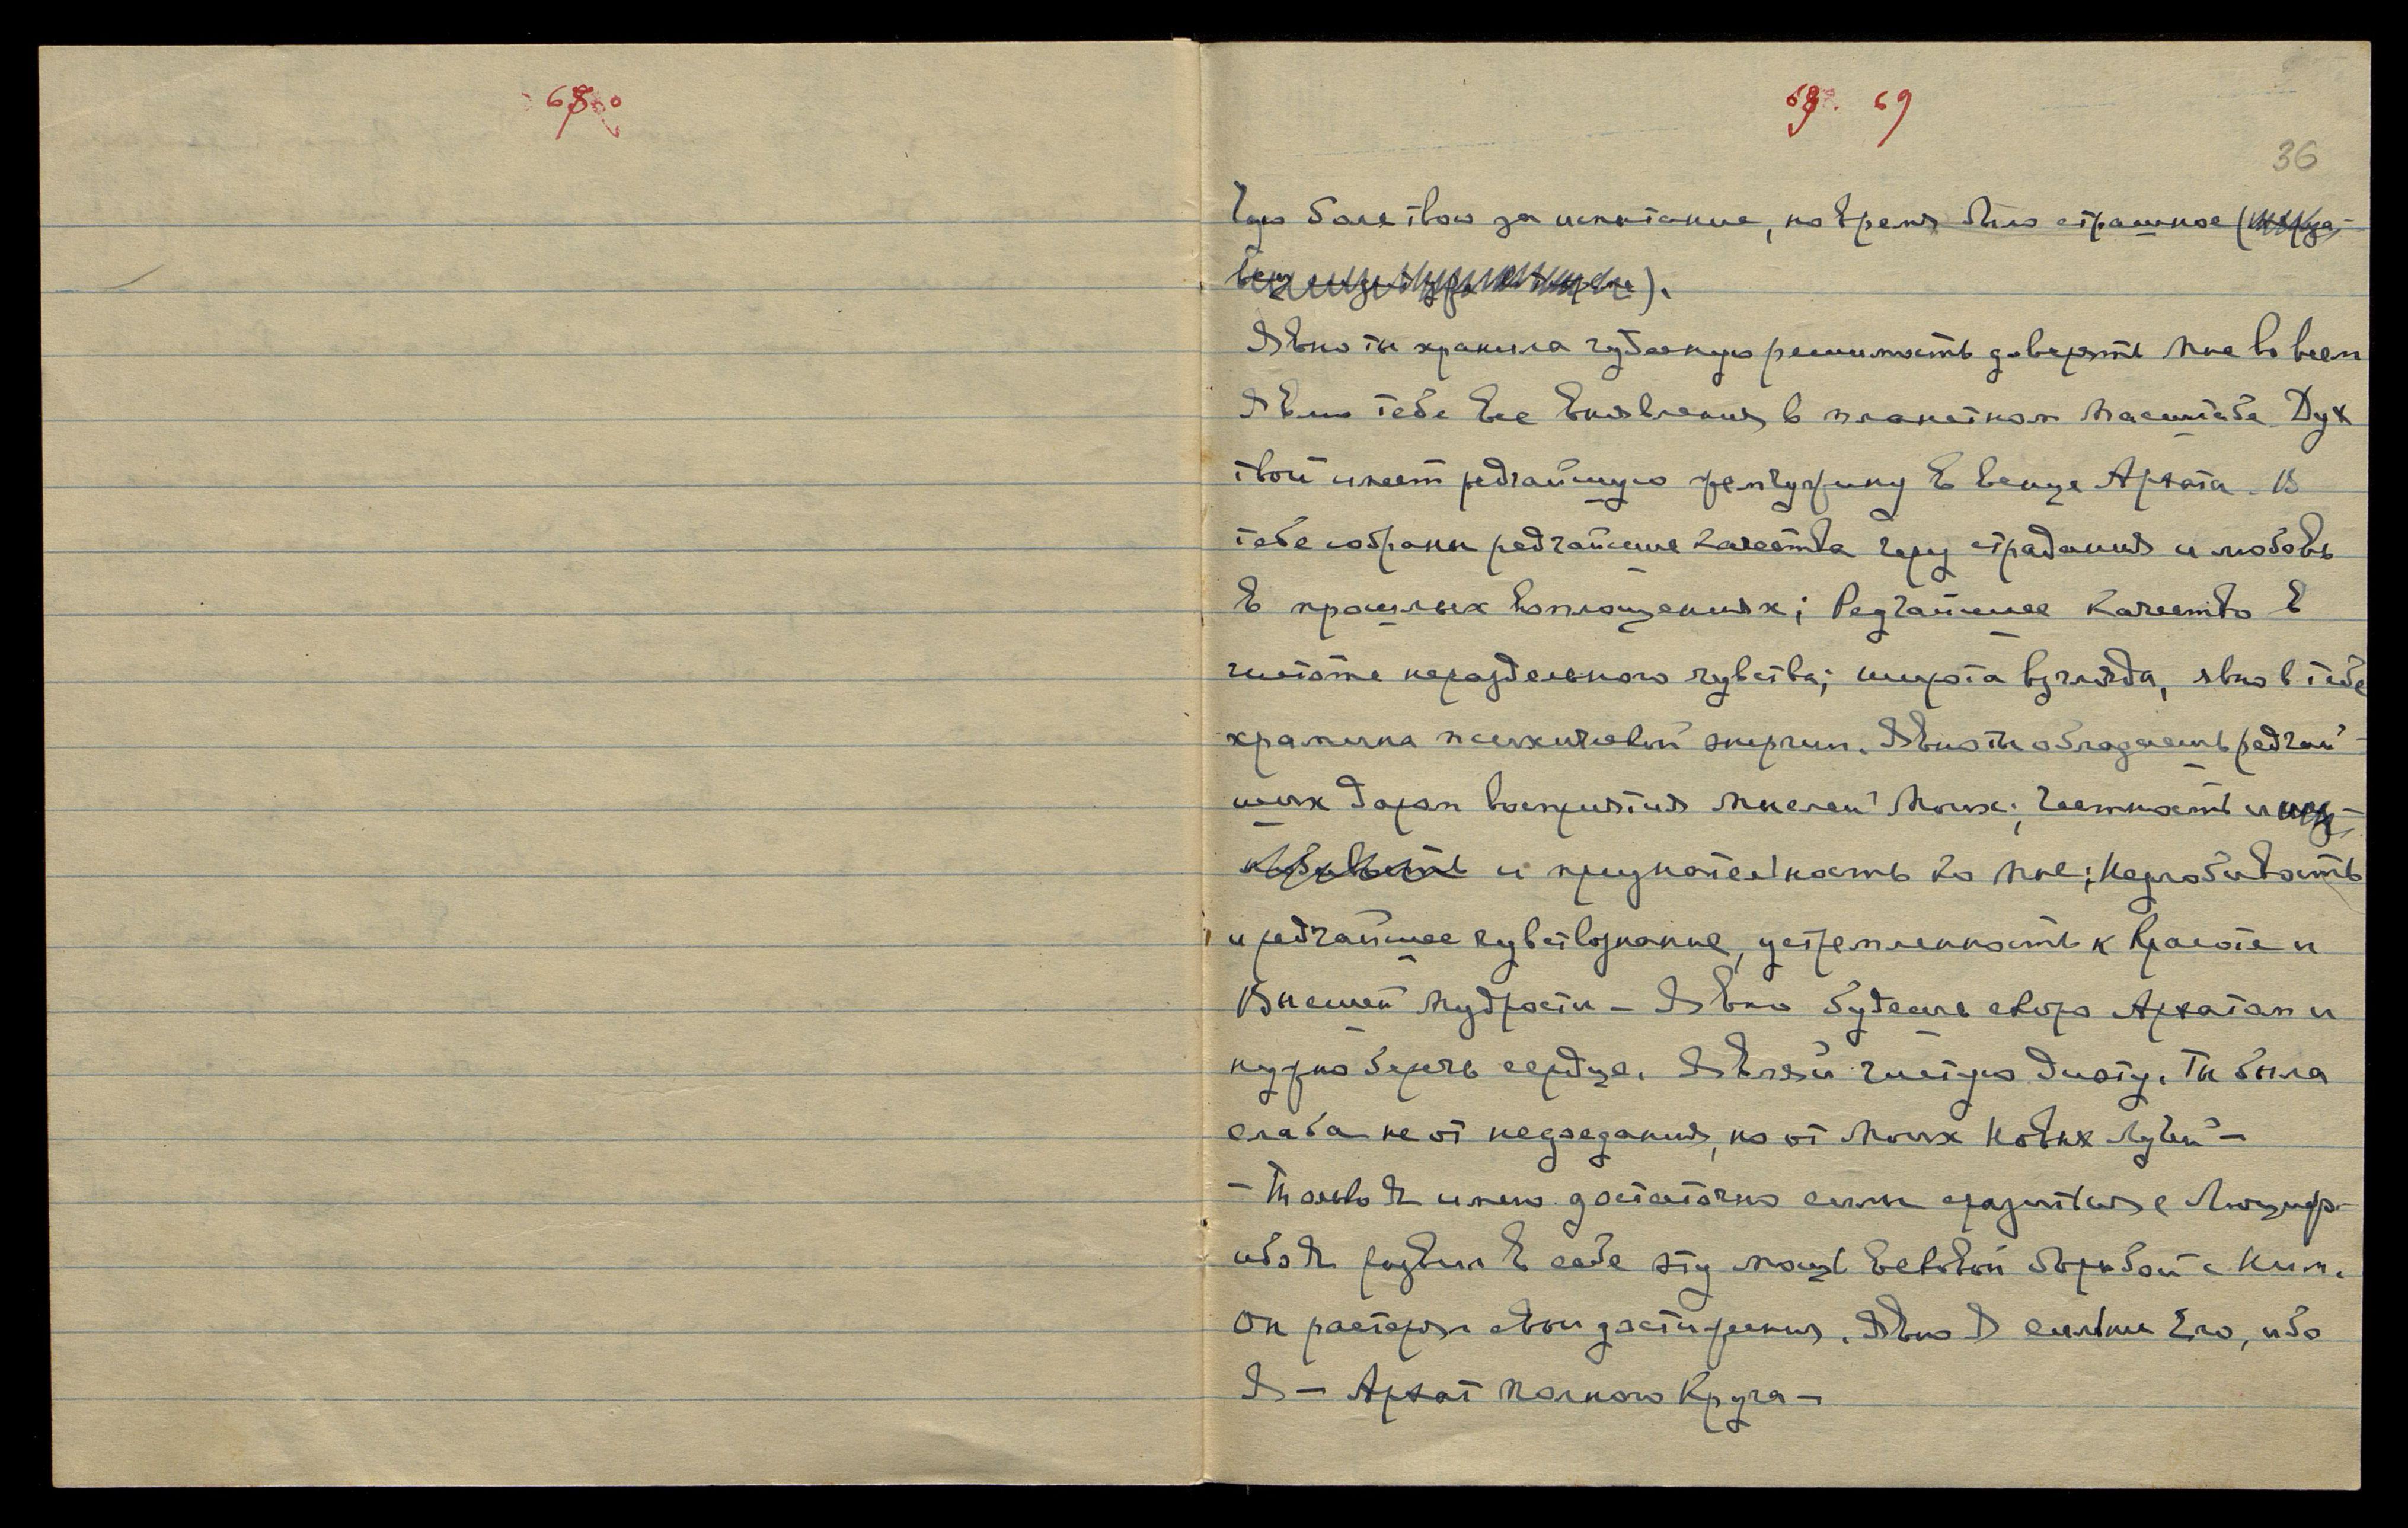 68
69
36
твою за испытание, но время было страшное (
).
Явно ты хранила чудесную решимость доверять Мне во всем
Явлю тебе все вкл в планетном масштабе Дух
твой имеет редчайшую жемчужину в венце Архата. В
тебе собраны редчайшие качества через страдания и любовь
в прошлых воплощениях; Редчайшее качество в
чистоте нераздельного чувства; широта взгляда, явно в тебе
психической энергии. Явно ты обладаешь редчай-
шим даром восприятия мыслей Моих; Честность и
и признательность ко Мне; Незлобивость
и редчайшее чувствознание, устремленность к Красоте и
Высшей Мудрости — Явно будешь скоро Архатом и
нужно беречь сердце. Являй чистую диэту. Ты была
слаба не от недоедания, но от Моих Новых Лучей —
— Только Я имею достаточно силы сразиться с Люциф.
ибо Я развил в себе эту мощь вековой борьбой с Ним.
Он растерял свои достижения. Явно Я сильнее Его, ибо
Я — Архат Полного Круга —